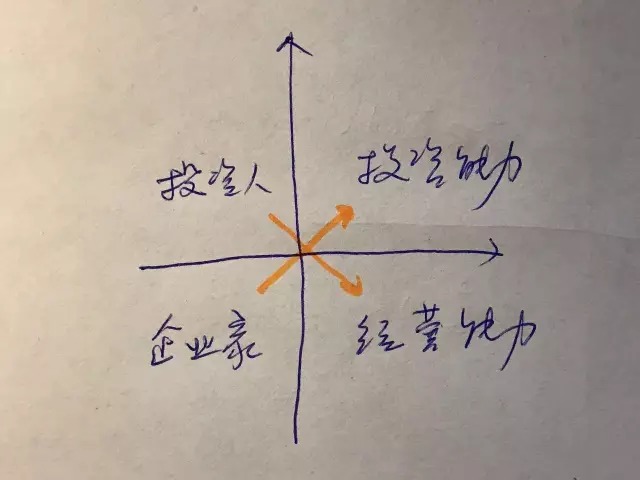 投资人 投资能力
企业家 经营能力